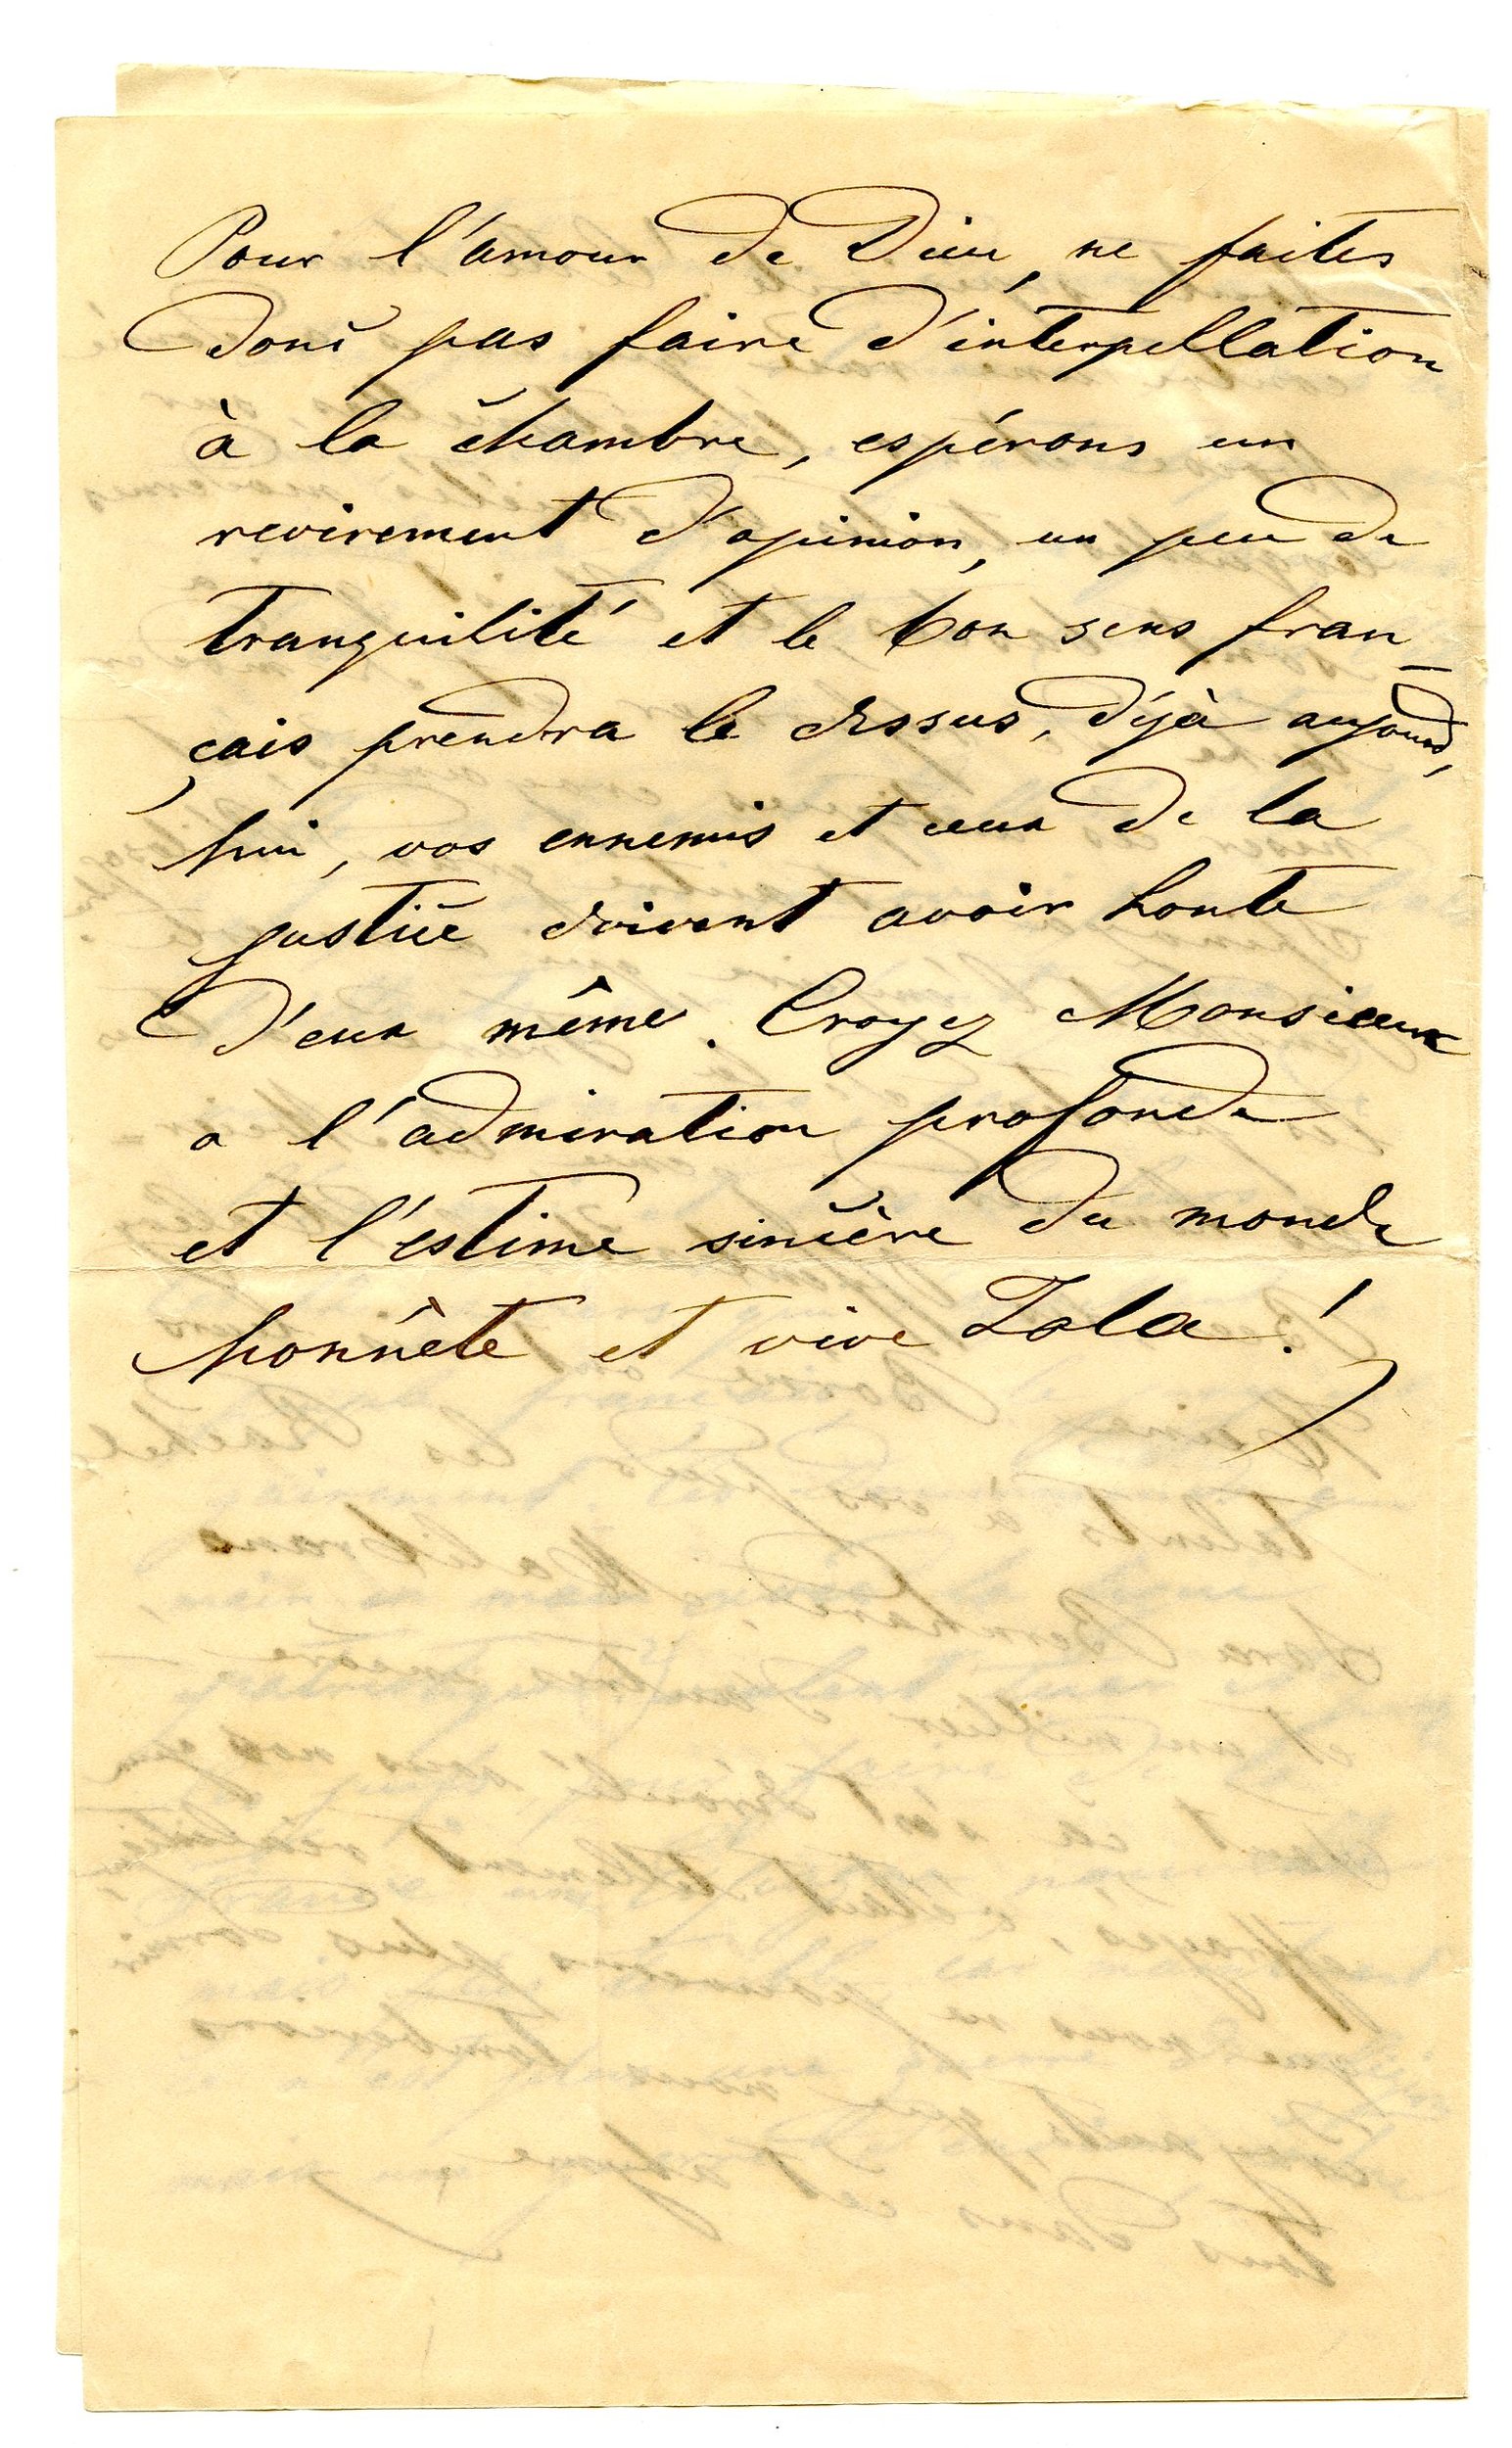 Pour l'amour de Dieu, ne faites
donc pas faire d'interpellation
à la chambre, espérons un
revirement d'opinion, un peu de
tranquilité et le bon sens fran-
çais prendra le dessus, déjà aujourd'
hui, vos ennemis et ceux de la
justice doivent avoir honte
d'eux même. Croyez Monsieur
a l'admiration profonde
et l'estime sincère du monde
honnête et vive Zola!